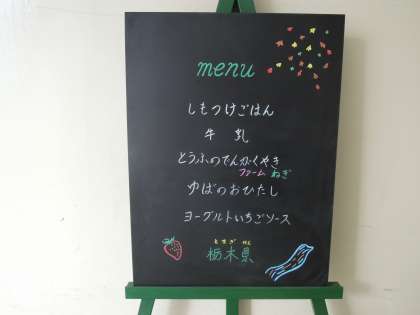 menu
しもつけごはん
牛乳
とうふのでんがくやき
ファーム ねぎ
ゆばのおひたし
ヨーグルトいちごソース
とちぎ けん
栃木県